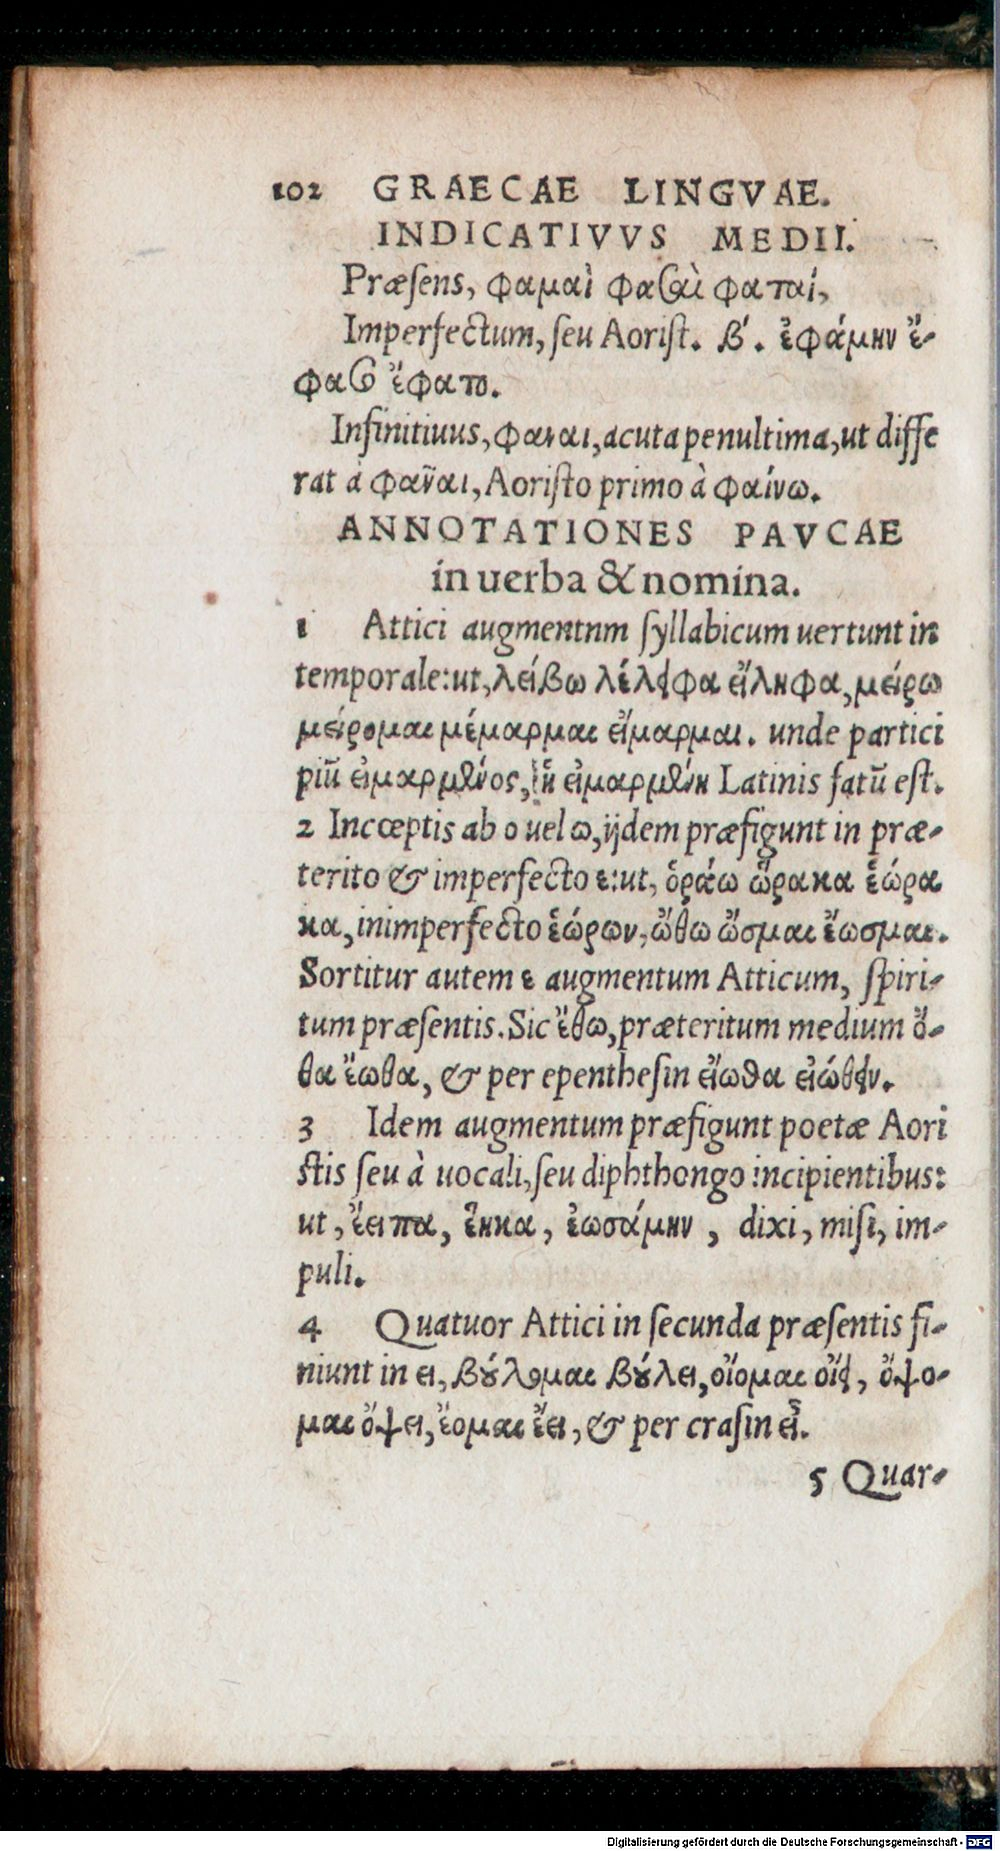 102 GRAECAE LINGVAE.
INDICATIVVS MEDII.
Præsens, φαμαὶ φασαὶ φαταί,
Imperfectum, seu Aorist. β΄. ἐφάμην ἔ-
φασο ἔφατο.
Infinitiuus, φαναι, acuta penultima, ut diffe
rat à φᾶναι, Aoristo primo à φαίνω.
ANNOTATIONES PAVCAE
in uerba & nomina.
1 Attici augmentnm syllabicum uertunt in
temporale: ut, λείβω λέλειφα εἴληφα, μείρω
μείρομαι μέμαρμαι εἵμαρμαι. unde partici
piū εἱμαρμένος, ἡ εἱμαρμένη Latinis fatū est.
2 Incœptis ab o uel ω, ijdem præfigunt in præ-
terito & imperfecto ε: ut, ὁράω ὥρακα ἑώρα
κα, inimperfecto ἑώρων, ὤθω ὦσμαι ἔωσμαι.
Sortitur autem ε augmentum Atticum, spiri-
tum præsentis. Sic ἔθω, præteritum medium ὄ-
θα ἔωθα, & per epenthesin εἴωθα εἰώθειν.
3 Idem augmentum præfigunt poetæ Aori
stis seu à uocali, seu diphthongo incipientibus:
ut, ἔειπα, ἕηκα, ἐωσάμην, dixi, misi, im-
puli.
4 Quatuor Attici in secunda præsentis fi-
niunt in ει, βούλομαι βούλει, οἴομαι οἴει, ὄψο-
μαι ὄψει, ἔομαι ἔει, & per crasin εἶ.
5 Quar-
Digitalisierung gefördert durch die Deutsche Forschungsgemeinschaft - DFG